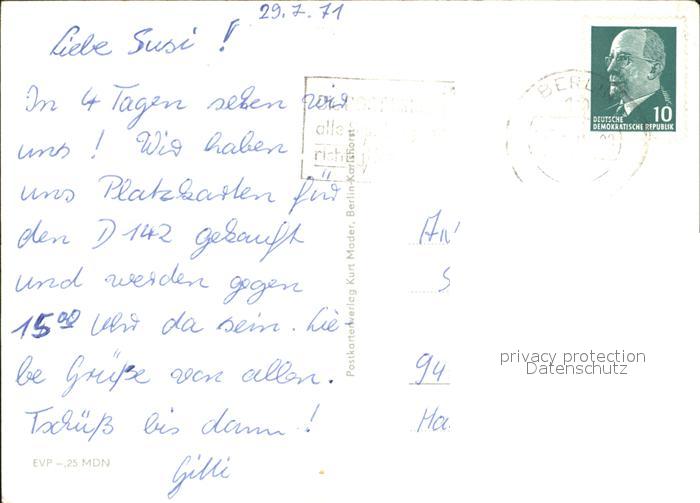 29.7.71
Liebe Susi!
In 4 Tagen sehen wir
uns! Wir haben
uns Platzkarten für
den D 142 gekauft
und werden gegen
15⁰⁰ Uhr da sein. Lie-
be Grüße von allen.
Tschüß bis dann!
Gitti
EVP –,25 MDN
Postkartenverlag Kurt Mader, Berlin-Karlshorst
BERLIN
10
DEUTSCHE
DEMOKRATISCHE REPUBLIK
94
privacy protection
Datenschutz